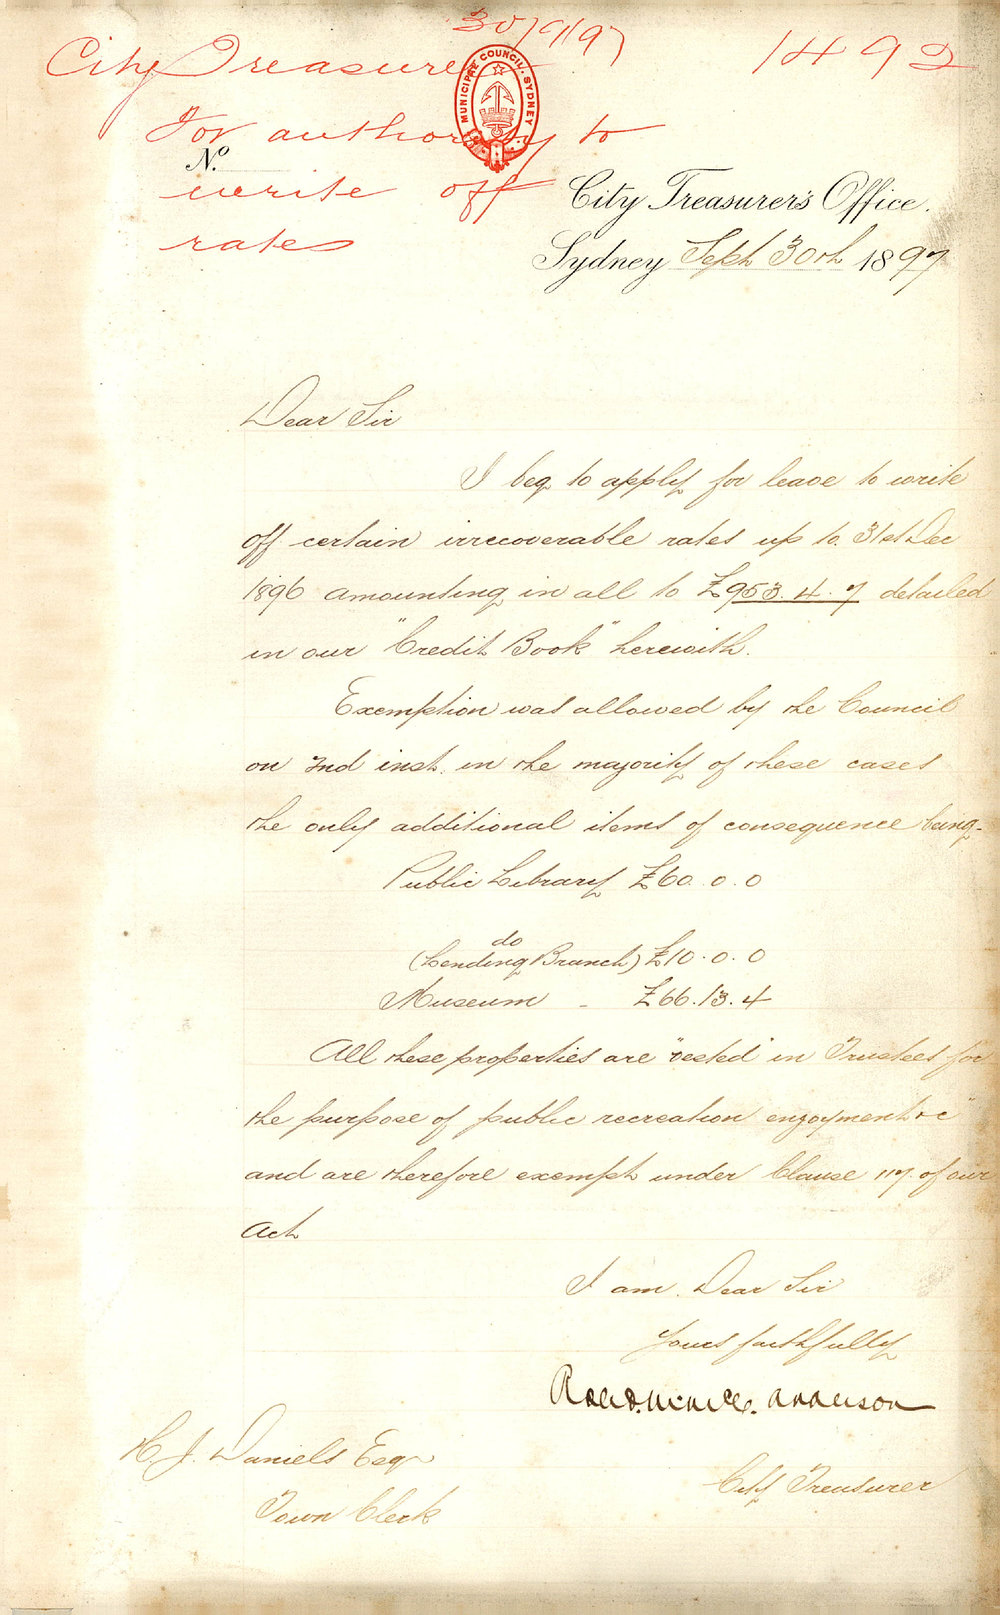 30/9/97
City Treasurer
1492
MUNICIPAL COUNCIL. SYDNEY
For authority to
No.
write off
rates
City Treasurer's Office.
Sydney Sept 30th 1897
Dear Sir
I beg to apply for leave to write
off certain irrecoverable rates up to 31st Dec
1896 amounting in all to £953.4.7 detailed
in our "Credit Book" herewith.
Exemption was allowed by the Council
on 2nd inst. in the majority of these cases
the only additional items of consequence being-
Public Library £60.0.0
do
(Lending Branch) £10.0.0
Museum - £66.13.4
All these properties are "vested" in Trustees for
the purpose of public recreation enjoyment &c"
and are therefore exempt under Clause 117. of our
Act
I am. Dear Sir
Yours faithfully
Anderson
H. J. Daniels Esqr
City Treasurer
Town Clerk